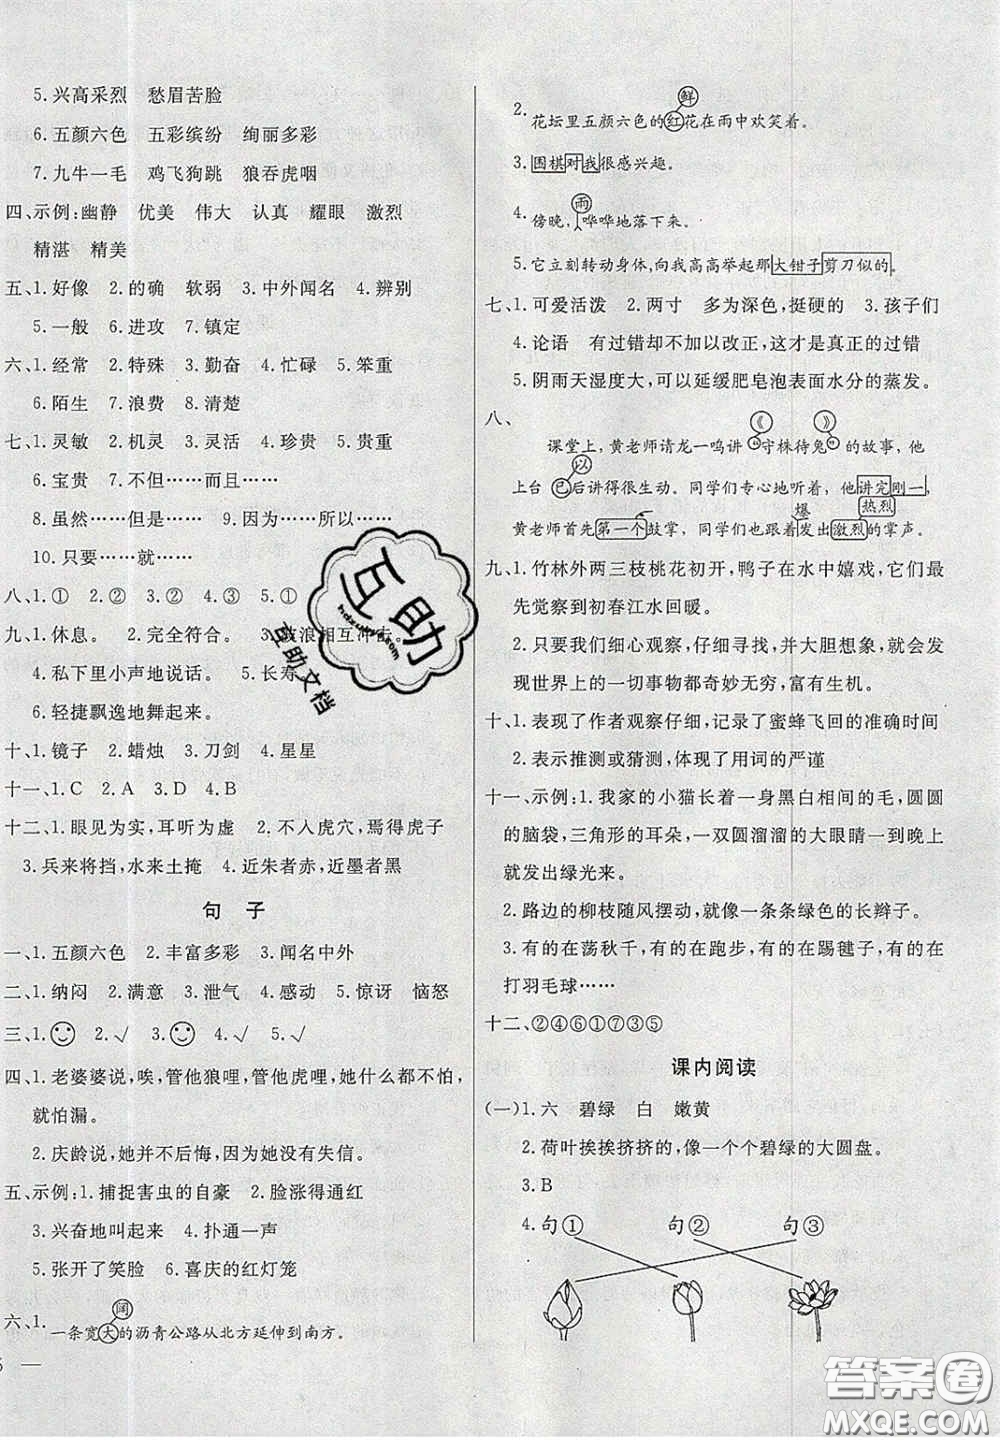 5.兴高采烈　愁眉苦脸
6.五颜六色　五彩缤纷　绚丽多彩
7.九牛一毛　鸡飞狗跳　狼吞虎咽
四、示例:幽静　优美　伟大　认真　耀眼　激烈
精湛　精美
五、1.好像　2.的确　软弱　3.中外闻名　4.辨别
5.一般　6.进攻　7.镇定
六、1.经常　2.特殊　3.勤奋　4.忙碌　5.笨重
6.陌生　7.浪费　8.清楚
七、1.灵敏　2.机灵　3.灵活　4.珍贵　5.贵重
6.宝贵　7.不但……而且……
8.虽然……但是……　9.因为……所以……
10.只要……就……
八、1.①　2.②　3.②　4.②　5.①
九、1.休息。　2.完全符合。　3.鼓浪相互冲击。
4.私下里小声地说话。　5.长寿
6.轻捷飘逸地舞起来。
十、1.镜子　2.蜡烛　3.刀剑　4.星星
十一、1.C　2.A　3.D　4.B
十二、1.眼见为实,耳听为虚　2.不入虎穴,焉得虎子
3.兵来将挡,水来土掩　4.近朱者赤,近墨者黑
句　子
一、1.五颜六色　2.丰富多彩　3.闻名中外
二、1.纳闷　2.满意　3.泄气　4.感动　5.惊讶　恼怒
三、1.　2.√　3.　4.√　5.√
四、1.老婆婆说,唉,管他狼哩,管他虎哩,她什么都不怕,
就怕漏。
2.庆龄说,她并不后悔,因为她没有失信。
五、示例:1.捕捉害虫的自豪　2.脸涨得通红
3.兴奋地叫起来　4.扑通一声
5.张开了笑脸　6.喜庆的红灯笼
阔
六、1.一条宽大的沥青公路从北方延伸到南方。
鲜
2.花坛里五颜六色的红花在雨中欢笑着。
3.围棋对我很感兴趣。
雨
4.傍晚,哗哗地落下来。
5.它立刻转动身体,向我高高举起那大钳子剪刀似的。
七、1.可爱活泼　2.两寸　多为深色,挺硬的　3.孩子们
4.论语　有过错却不加以改正,这才是真正的过错
5.阴雨天湿度大,可以延缓肥皂泡表面水分的蒸发。
八、
《　》
课堂上,黄老师请龙一鸣讲“守株待兔”的故事,他
以
上台已后讲得很生动。同学们专心地听着,他讲完刚一,
爆　热烈
黄老师首先第一个鼓掌,同学们也跟着发出激烈的掌声。
九、1.竹林外两三枝桃花初开,鸭子在水中嬉戏,它们最
先觉察到初春江水回暖。
2.只要我们细心观察,仔细寻找,并大胆想象,就会
发现世界上的一切事物都奇妙无穷,富有生机。
十、1.表现了作者观察仔细,记录了蜜蜂飞回的准确时间
2.表示推测或猜测,体现了用词的严谨
十一、示例:1.我家的小猫长着一身黑白相间的毛,圆圆
的脑袋,三角形的耳朵,一双圆溜溜的大眼睛一到晚上
就发出绿光来。
2.路边的柳枝随风摆动,就像一条条绿色的长辫子。
3.有的在荡秋千,有的在跑步,有的在踢毽子,有的在
打羽毛球……
十二、②④⑥①⑦③⑤
课内阅读
(一)1.六　碧绿　白　嫩黄
2.荷叶挨挨挤挤的,像一个个碧绿的大圆盘。
3.B
4.句①　句②　句③
互助
hdzuoye.com
互助文档
答案圈
MXQE.COM